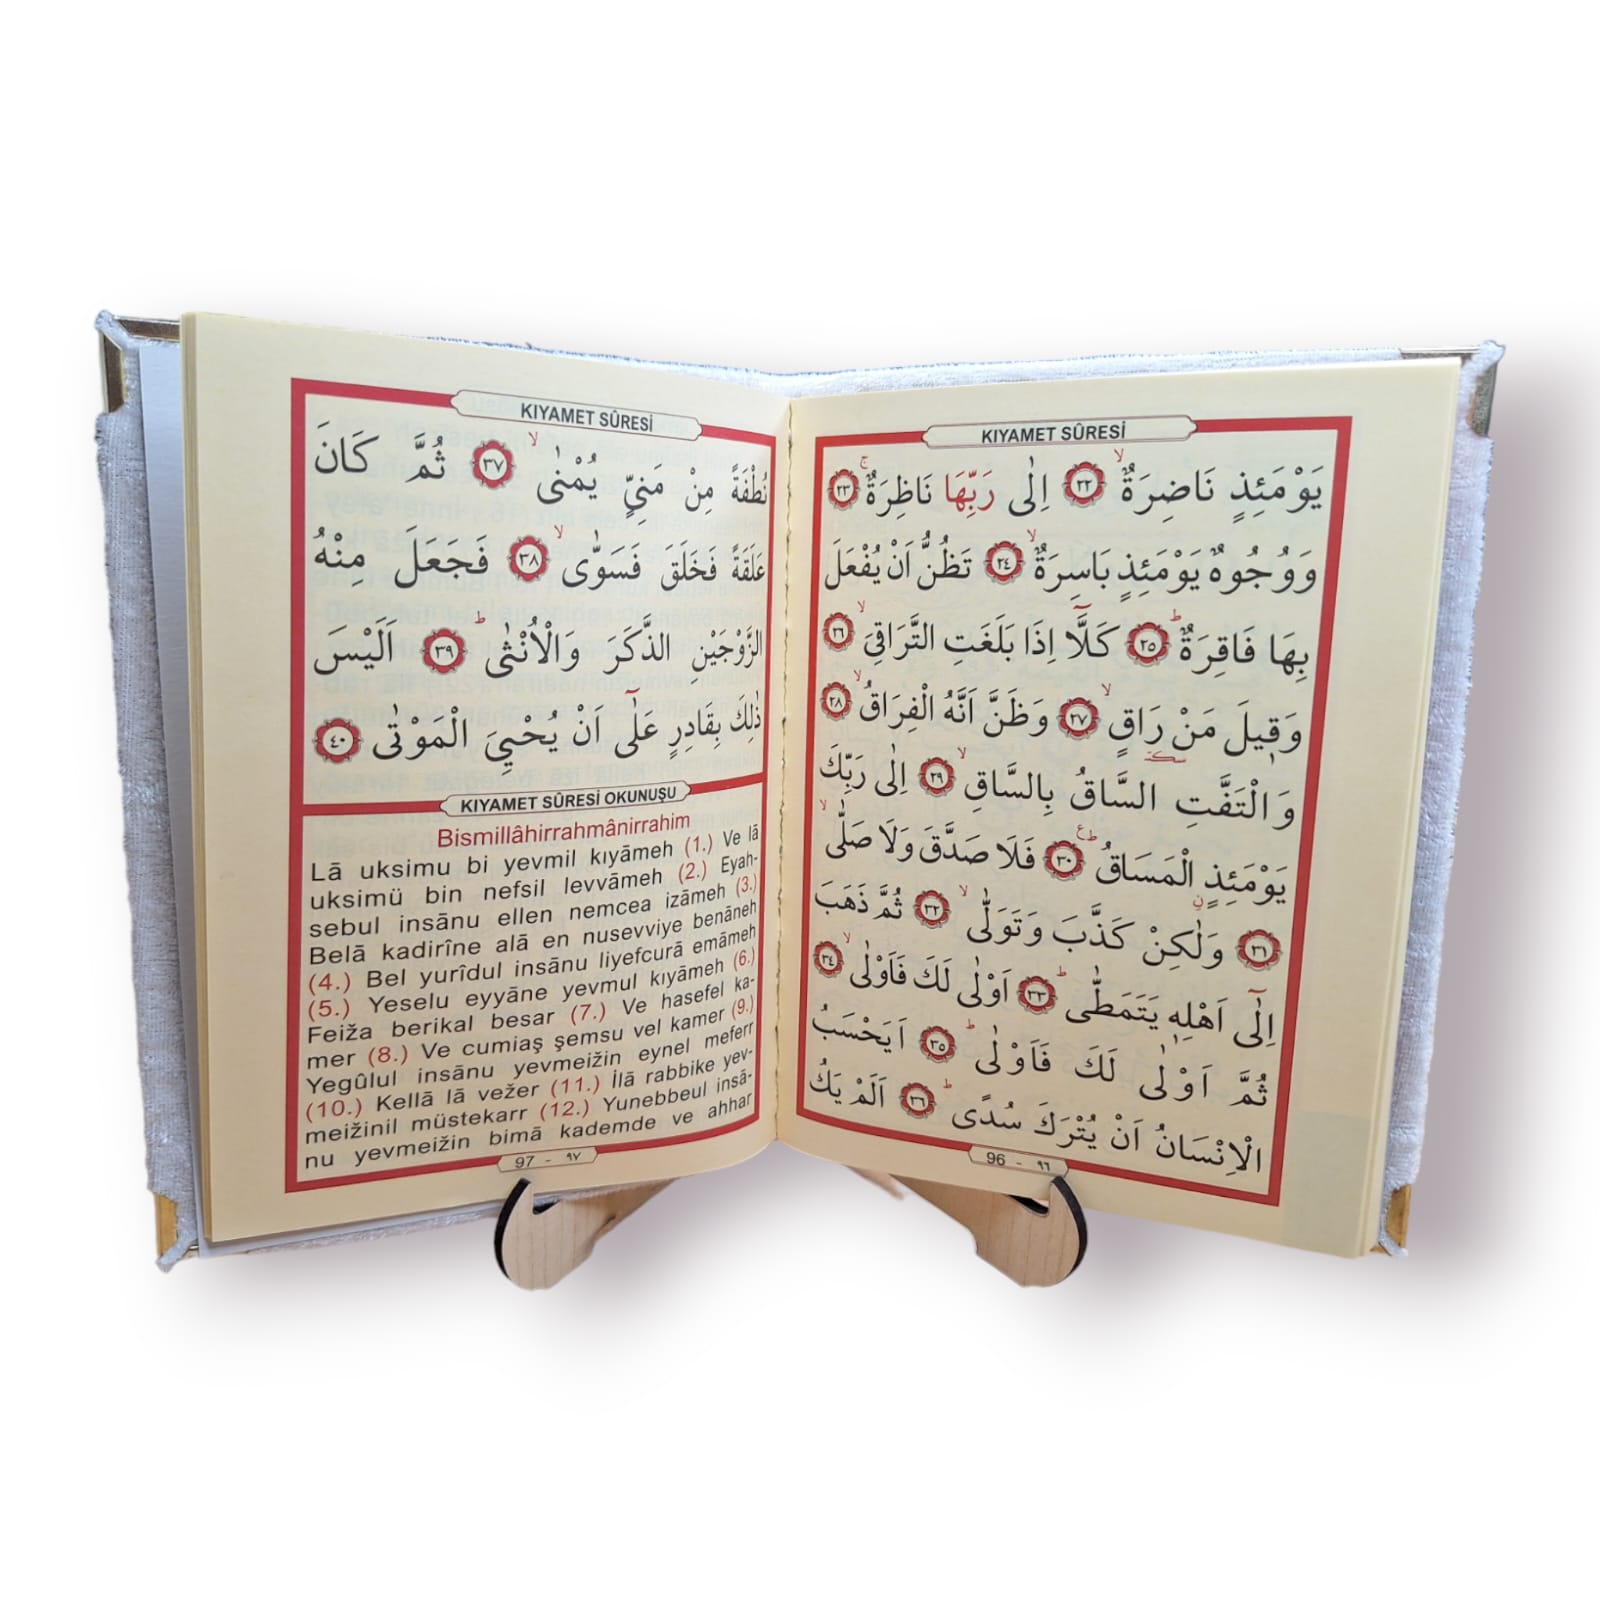 KIYAMET SÛRESİ
يَوْمَئِذٍ نَاضِرَةٌۙ ﴿٢٢﴾ اِلٰى رَبِّهَا نَاظِرَةٌۚ ﴿٢٣﴾
وَوُجُوهٌ يَوْمَئِذٍ بَاسِرَةٌۙ ﴿٢٤﴾ تَظُنُّ اَنْ يُفْعَلَ
بِهَا فَاقِرَةٌۜ ﴿٢٥﴾ كَلَّٓا اِذَا بَلَغَتِ التَّرَاقِيَۙ ﴿٢٦﴾
وَق۪يلَ مَنْ رَاقٍۙ ﴿٢٧﴾ وَظَنَّ اَنَّهُ الْفِرَاقُۙ ﴿٢٨﴾
وَالْتَفَّتِ السَّاقُ بِالسَّاقِۙ ﴿٢٩﴾ اِلٰى رَبِّكَ
يَوْمَئِذٍ الْمَسَاقُۜ ﴿٣٠﴾ فَلَا صَدَّقَ وَلَا صَلّٰىۙ
﴿٣١﴾ وَلٰكِنْ كَذَّبَ وَتَوَلّٰىۙ ﴿٣٢﴾ ثُمَّ ذَهَبَ
اِلٰٓى اَهْلِه۪ يَتَمَطّٰىۜ ﴿٣٣﴾ اَوْلٰى لَكَ فَاَوْلٰىۙ ﴿٣٤﴾
ثُمَّ اَوْلٰى لَكَ فَاَوْلٰىۜ ﴿٣٥﴾ اَيَحْسَبُ
الْاِنْسَانُ اَنْ يُتْرَكَ سُدًىۜ ﴿٣٦﴾ اَلَمْ يَكُ
96 - ٩٦
KIYAMET SÛRESİ
نُطْفَةً مِنْ مَنِيٍّ يُمْنٰىۙ ﴿٣٧﴾ ثُمَّ كَانَ
عَلَقَةً فَخَلَقَ فَسَوّٰىۙ ﴿٣٨﴾ فَجَعَلَ مِنْهُ
الزَّوْجَيْنِ الذَّكَرَ وَالْاُنْثٰىۜ ﴿٣٩﴾ اَلَيْسَ
ذٰلِكَ بِقَادِرٍ عَلٰٓى اَنْ يُحْيِيَ الْمَوْتٰى ﴿٤٠﴾
KIYAMET SÛRESİ OKUNUŞU
Bismillâhirrahmânirrahim
Lā uksimu bi yevmil kıyāmeh (1.) Ve lā
uksimü bin nefsil levvāmeh (2.) Eyah-
sebul insānu ellen nemcea izāmeh (3.)
Belā kadirîne alā en nusevviye benāneh
(4.) Bel yurîdul insānu liyefcurā emāmeh
(5.) Yeselu eyyāne yevmul kıyāmeh (6.)
Feiža berikal besar (7.) Ve hasefel ka-
mer (8.) Ve cumiaş şemsu vel kamer (9.)
Yegûlul insānu yevmeižin eynel meferr
(10.) Kellā lā vežer (11.) İlā rabbike yev-
meižinil müstekarr (12.) Yunebbeul insā-
nu yevmeižin bimā kademde ve ahhar
97 - ٩٧